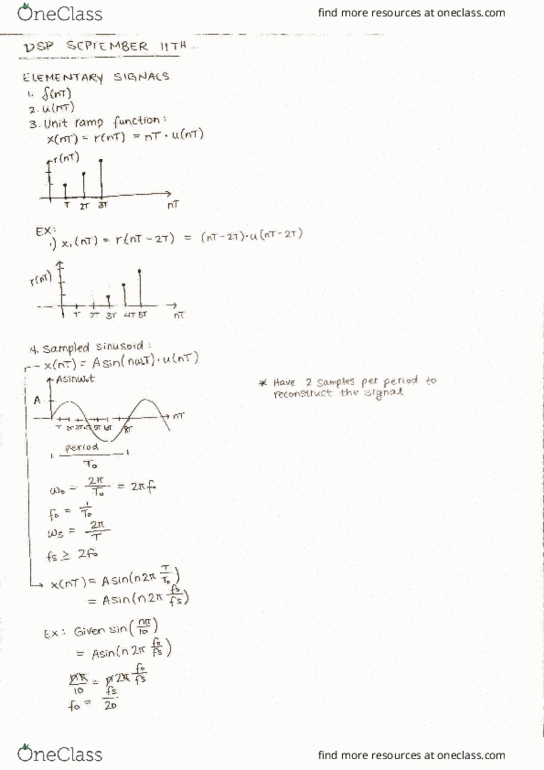 OneClass
find more resources at oneclass.com
DSP SEPTEMBER 11TH
ELEMENTARY SIGNALS
1. δ(nT)
2. u(nT)
3. Unit ramp function:
x(nT) = r(nT) = nT · u(nT)
r(nT)
T 2T 3T nT
EX:
1) x₁(nT) = r(nT - 2T) = (nT - 2T)·u(nT - 2T)
r(nT)
T 2T 3T 4T 5T nT
4. Sampled sinusoid:
- x(nT) = A sin(nω₀T)·u(nT)
* Have 2 samples per period to
reconstruct the signal
Asinω₀t
A
nT
period
T₀
ω₀ = 2π/T₀ = 2πf₀
f₀ = 1/T₀
ωs = 2π/T
fs ≥ 2f₀
x(nT) = A sin(n2π T/T₀)
= A sin(n2π f₀/fs)
Ex: Given sin(nπ/10)
= A sin(n2π f₀/fs)
nπ/10 = n2π f₀/fs
f₀ = fs/20
OneClass
find more resources at oneclass.com